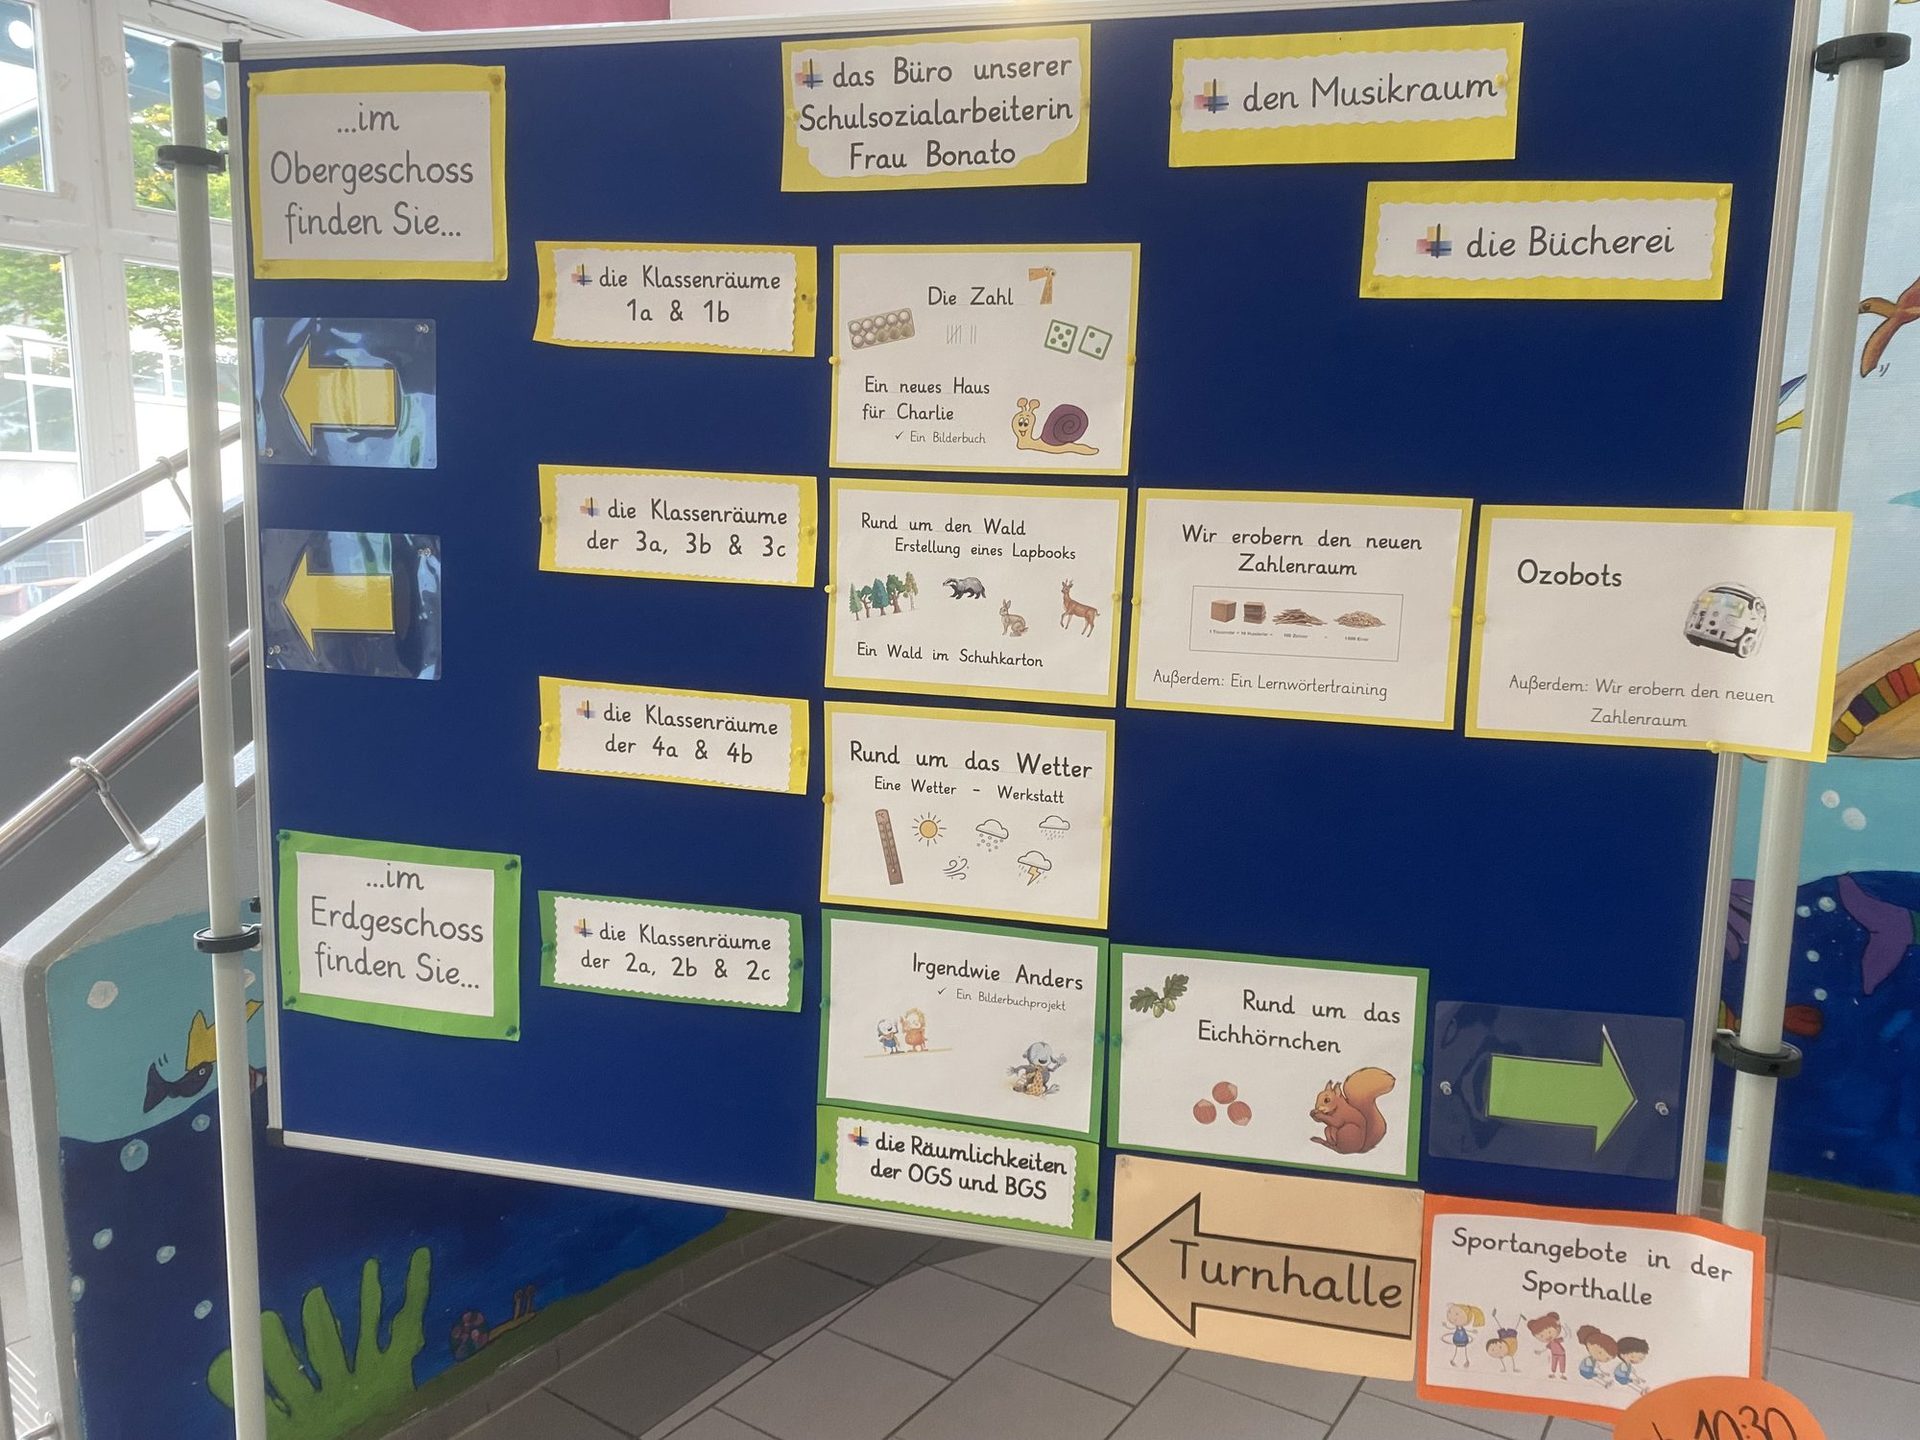 ...im
Obergeschoss
finden Sie...
das Büro unserer
Schulsozialarbeiterin
Frau Bonato
den Musikraum
die Bücherei
die Klassenräume
1a & 1b
Die Zahl 7
Ein neues Haus
für Charlie
✓ Ein Bilderbuch
die Klassenräume
der 3a, 3b & 3c
Rund um den Wald
Erstellung eines Lapbooks
Ein Wald im Schuhkarton
Wir erobern den neuen
Zahlenraum
Außerdem: Ein Lernwörtertraining
Ozobots
Außerdem: Wir erobern den neuen
Zahlenraum
die Klassenräume
der 4a & 4b
Rund um das Wetter
Eine Wetter - Werkstatt
...im
Erdgeschoss
finden Sie...
die Klassenräume
der 2a, 2b & 2c
Irgendwie Anders
✓ Ein Bilderbuchprojekt
Rund um das
Eichhörnchen
die Räumlichkeiten
der OGS und BGS
Turnhalle
Sportangebote in der
Sporthalle
10:30